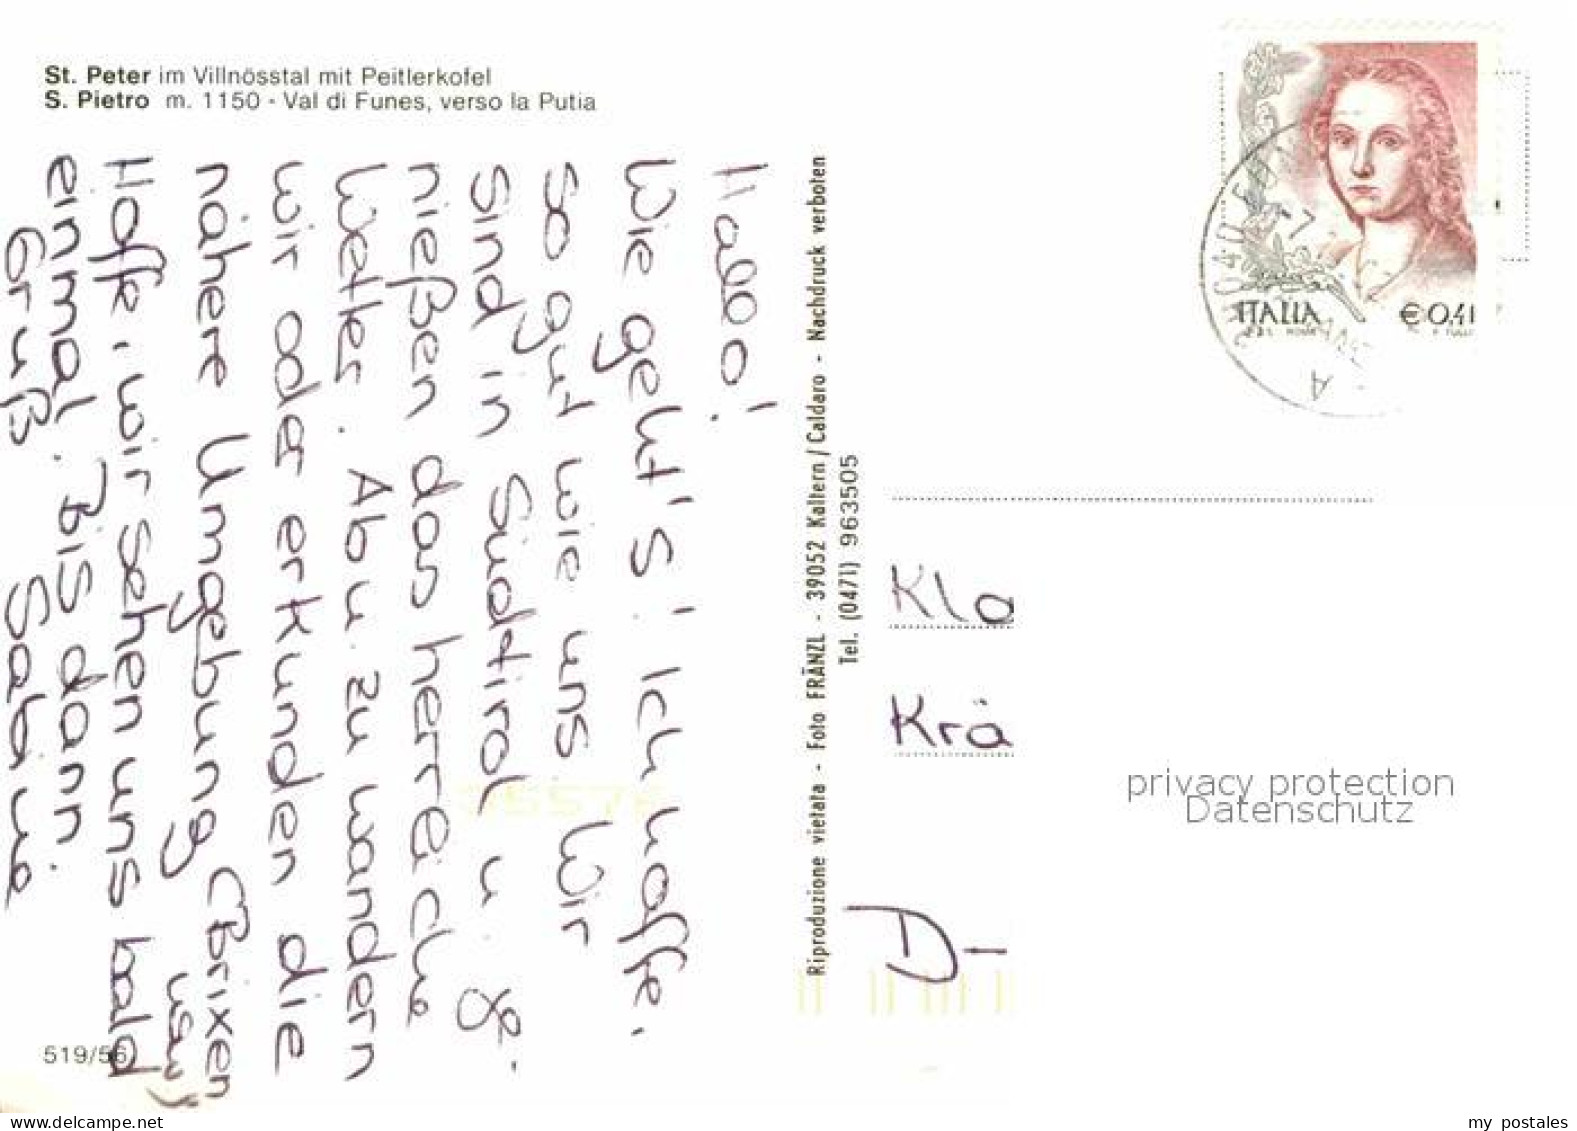 St. Peter im Villnösstal mit Peitlerkofel
S. Pietro m. 1150 - Val di Funes, verso la Putia
Hallo!
Wie geht's! Ich hoffe,
so gut wie uns Wir
sind in Südtirol u. ge-
nießen das herrliche
Wetter. Ab u. zu wandern
wir oder erkunden die
nähere Umgebung (Brixen
usw)
Hoffe, wir sehen uns bald
einmal. Bis dann.
Gruß Sabine
519/56
Riproduzione vietata - Foto FRÄNZL - 39052 Kaltern / Caldaro - Nachdruck verboten
Tel. (0471) 963505
ITALIA
€ 0,41
Kla
Krä
D-
privacy protection
Datenschutz
www.delcampe.net
my_postales